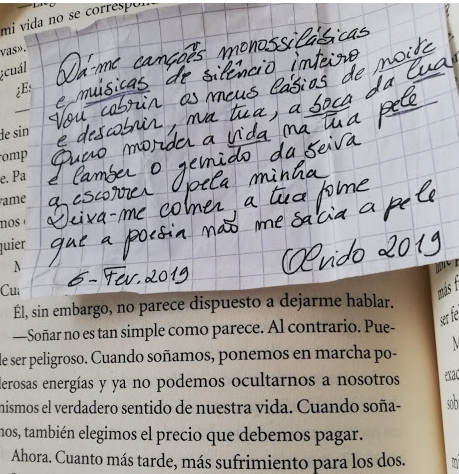 mi vida no se correspon
vas».
¿cuál
¿E
de sin
omp
e. Pa
vame
nos
quier
N
Cua
Dá-me canções monossilábicas
e músicas de silêncio inteiro
Vou cobrir os meus lábios de noite
e descobrir, na tua, a boca da lua
Quero morder a vida na tua pele
e lamber o gemido da seiva
a escorrer pela minha
Deixa-me comer a tua fome
que a poesia não me sacia a pele
6-Fev. 2019
Olvido 2019
Él, sin embargo, no parece dispuesto a dejarme hablar.
—Soñar no es tan simple como parece. Al contrario. Pue-
de ser peligroso. Cuando soñamos, ponemos en marcha po-
derosas energías y ya no podemos ocultarnos a nosotros
mismos el verdadero sentido de nuestra vida. Cuando soña-
mos, también elegimos el precio que debemos pagar.
Ahora. Cuanto más tarde, más sufrimiento para los dos.
más f
ser fe
M
exac
sob